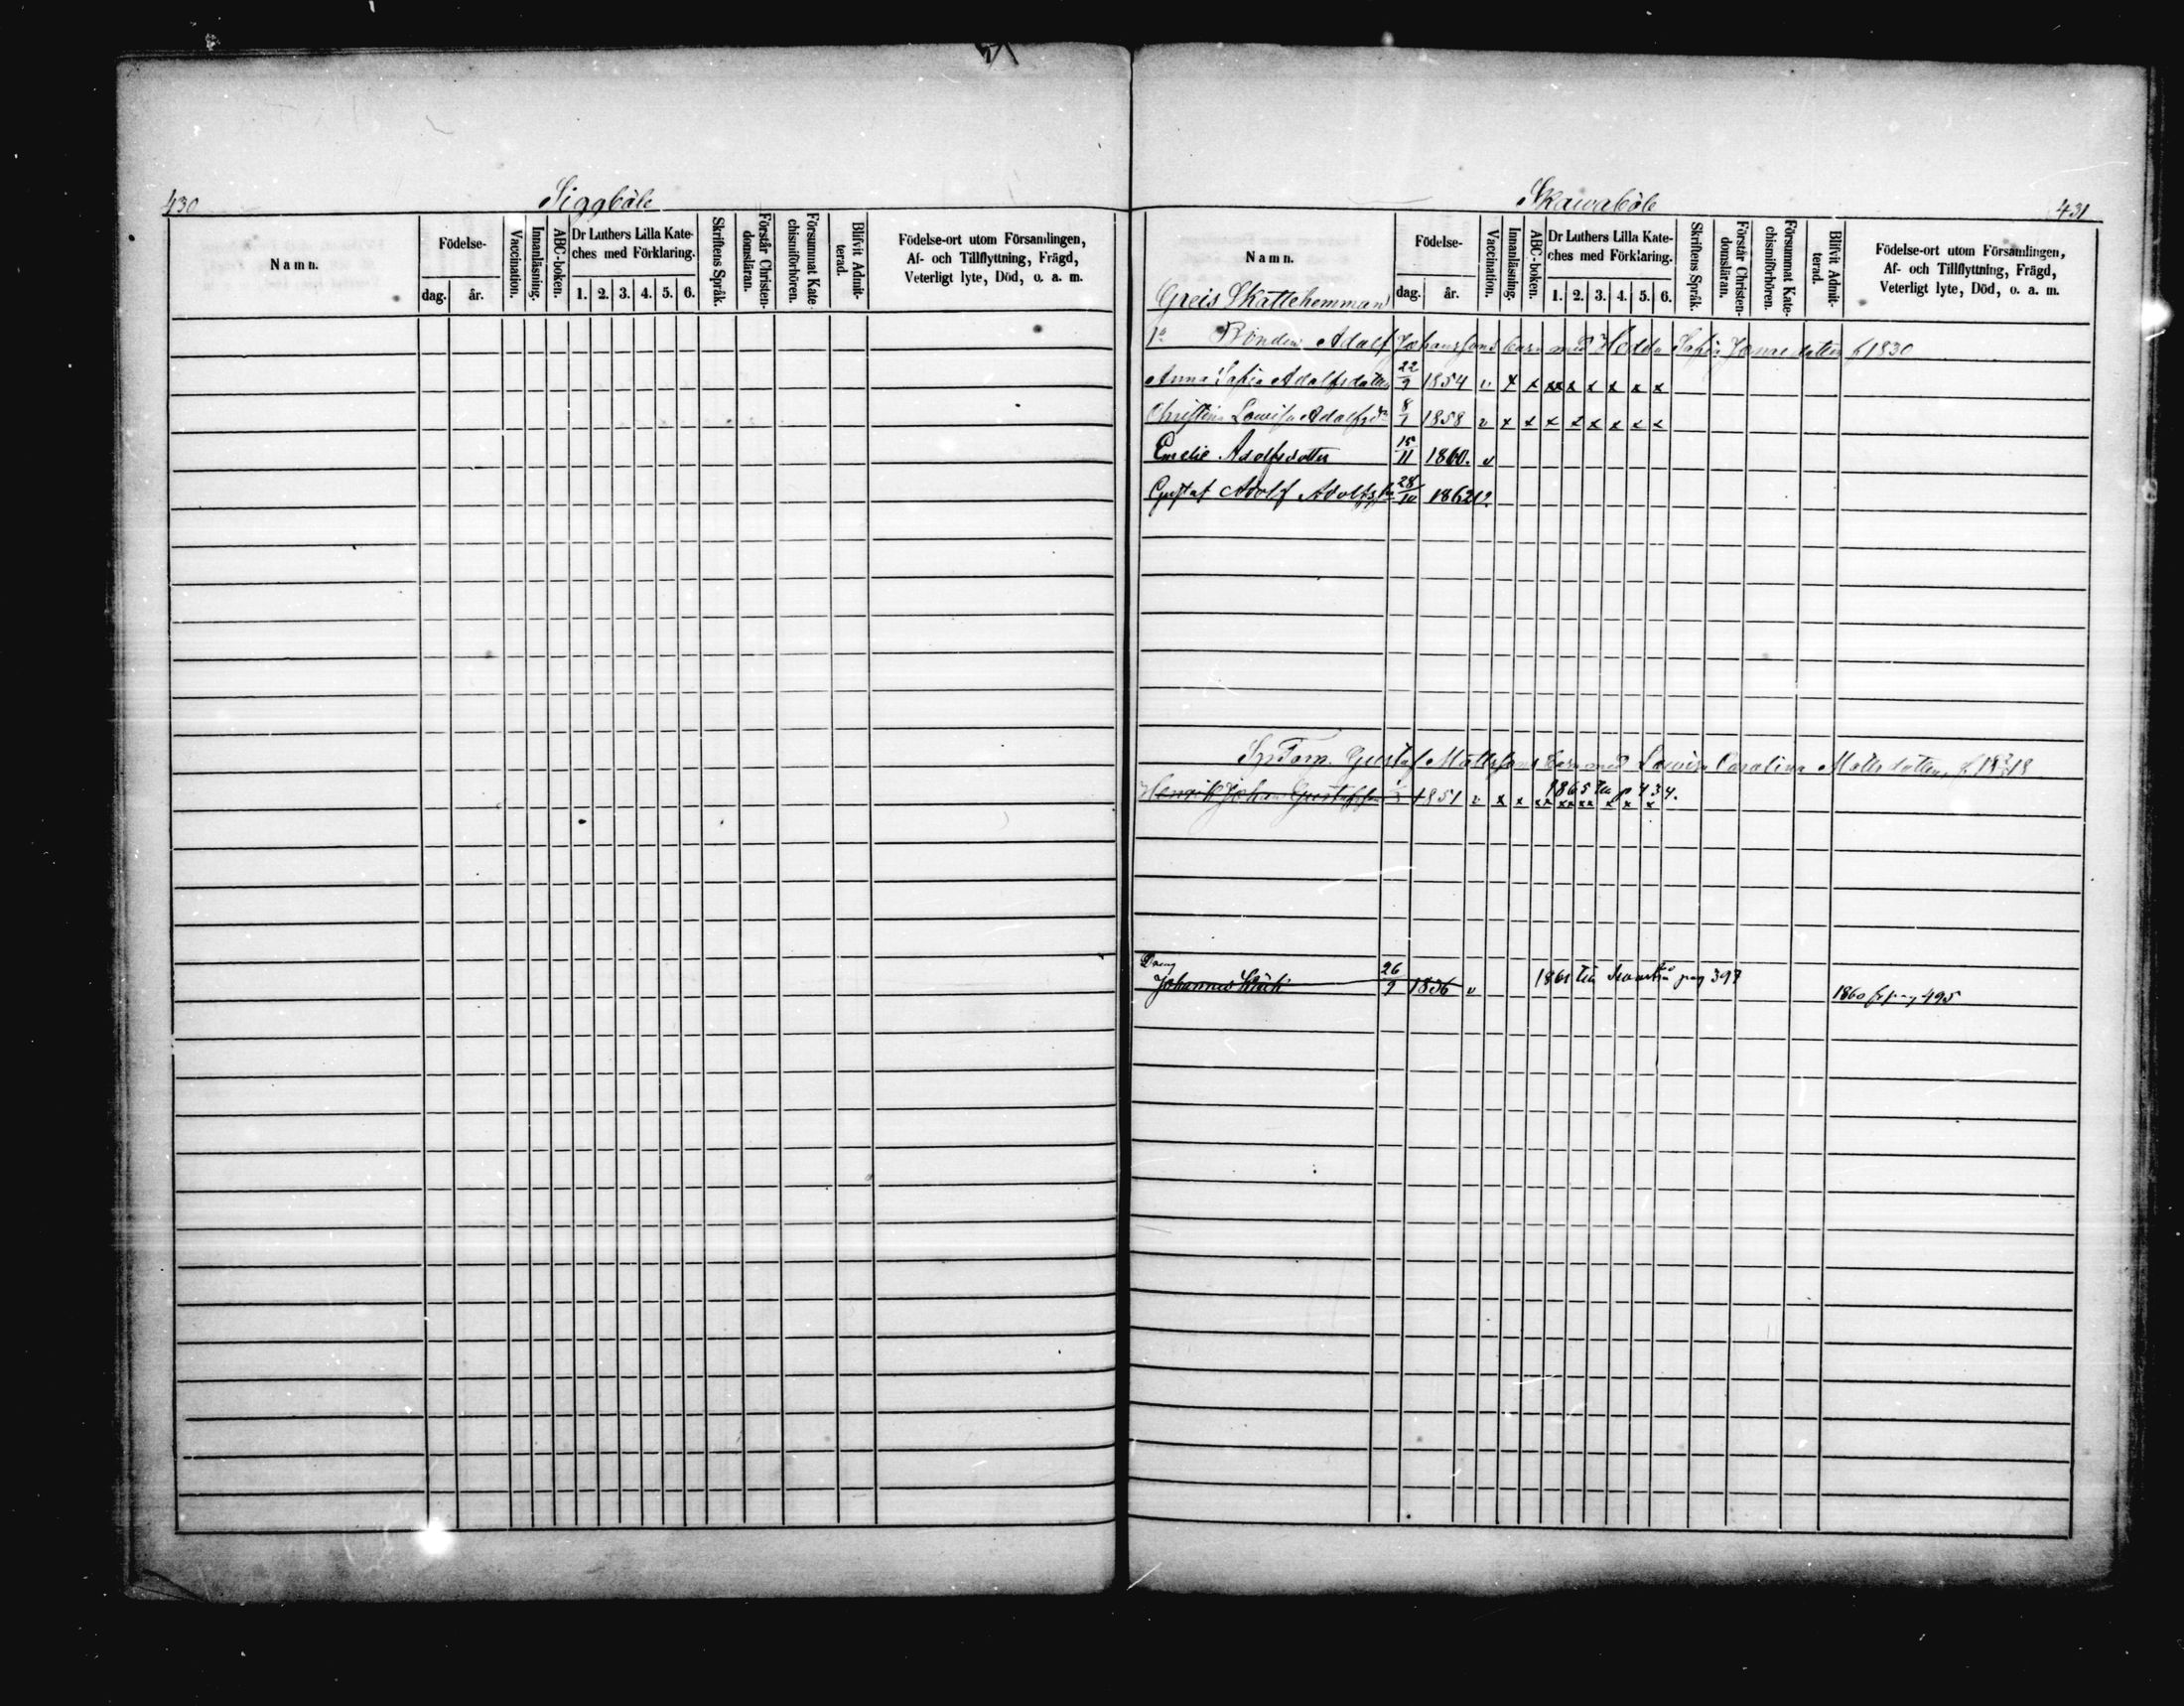 430
Siggböle
Namn.
Födelse-
dag. år.
Vaccination.
Innanläsning.
ABC-boken.
Dr Luthers Lilla Kate-
ches med Förklaring.
1. 2. 3. 4. 5. 6.
Skriftens Språk.
Förstår Christen-
domsläran.
Försummat Kate-
chismiförhören.
Blifvit Admit-
terad.
Födelse-ort utom Församlingen,
Af- och Tillflyttning, Frägd,
Veterligt lyte, Död, o. a. m.
Skawaböle
431
Namn.
Greis Skattehemman
Födelse-
dag. år.
Vaccination.
Innanläsning.
ABC-boken.
Dr Luthers Lilla Kate-
ches med Förklaring.
1. 2. 3. 4. 5. 6.
Skriftens Språk.
Förstår Christen-
domsläran.
Försummat Kate-
chismiförhören.
Blifvit Admit-
terad.
Födelse-ort utom Församlingen,
Af- och Tillflyttning, Frägd,
Veterligt lyte, Död, o. a. m.
Bonden Adolf Johanssons barn med Hedda Sofia Jonaedotter f 1830
Anna Sofia Adolfsdotter 22/9 1854 v x x xx x x x x x
Christina Lowisa Adolfsdr 8/7 1858 v x x x x x x x x
Emelie Adolfsdotter 15/11 1860. v
Gustaf Adolf Adolfsson 28/10 1862 v.
Gustaf Mattssons barn med Lowisa Carolina Mattsdotter f
Henrik Johan Gustafsson 1851 v x x xx xx xx x x x
1865 till p 434.
Dreng
Johannes 26/9 1836 v
1861 till pag 397
1860 fr pag 495